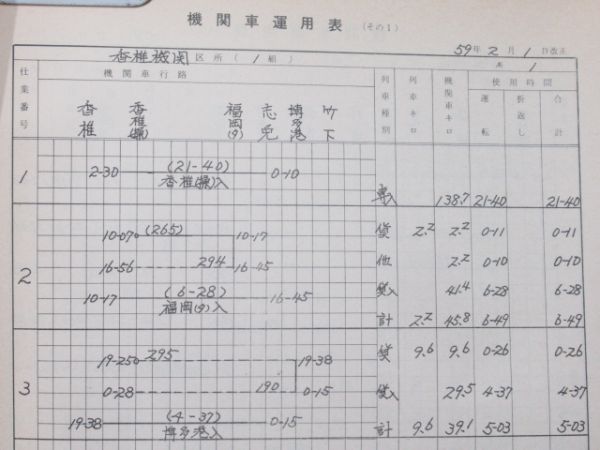 機関車運用表 (その1)
59年 2月 1日改正
香椎機関区所 (1組)
仕業番号 機関車行路 列車種別 列車キロ 機関車キロ 使用時間
運転 折返し 合計
香椎 香椎(操) 福岡(タ) 志免 博多港 竹下
1 2-30 (21-40) 0-10
香椎(操)入
138.7 21-40 21-40
10-07 (265) 10-17 貨 2.2 2.2 0-11 0-11
2 16-56 294 16-45 2.2 0-10 0-10
10-17 (6-28) 16-45 41.4 6-28 6-28
福岡(タ)入
計 2.2 45.8 6-49 6-49
19-25 295 19-38 貨 9.6 9.6 0-26 0-26
3 0-28 190 0-15 29.5 4-37 4-37
19-38 (4-37) 0-15 計 9.6 39.1 5-03 5-03
博多港入